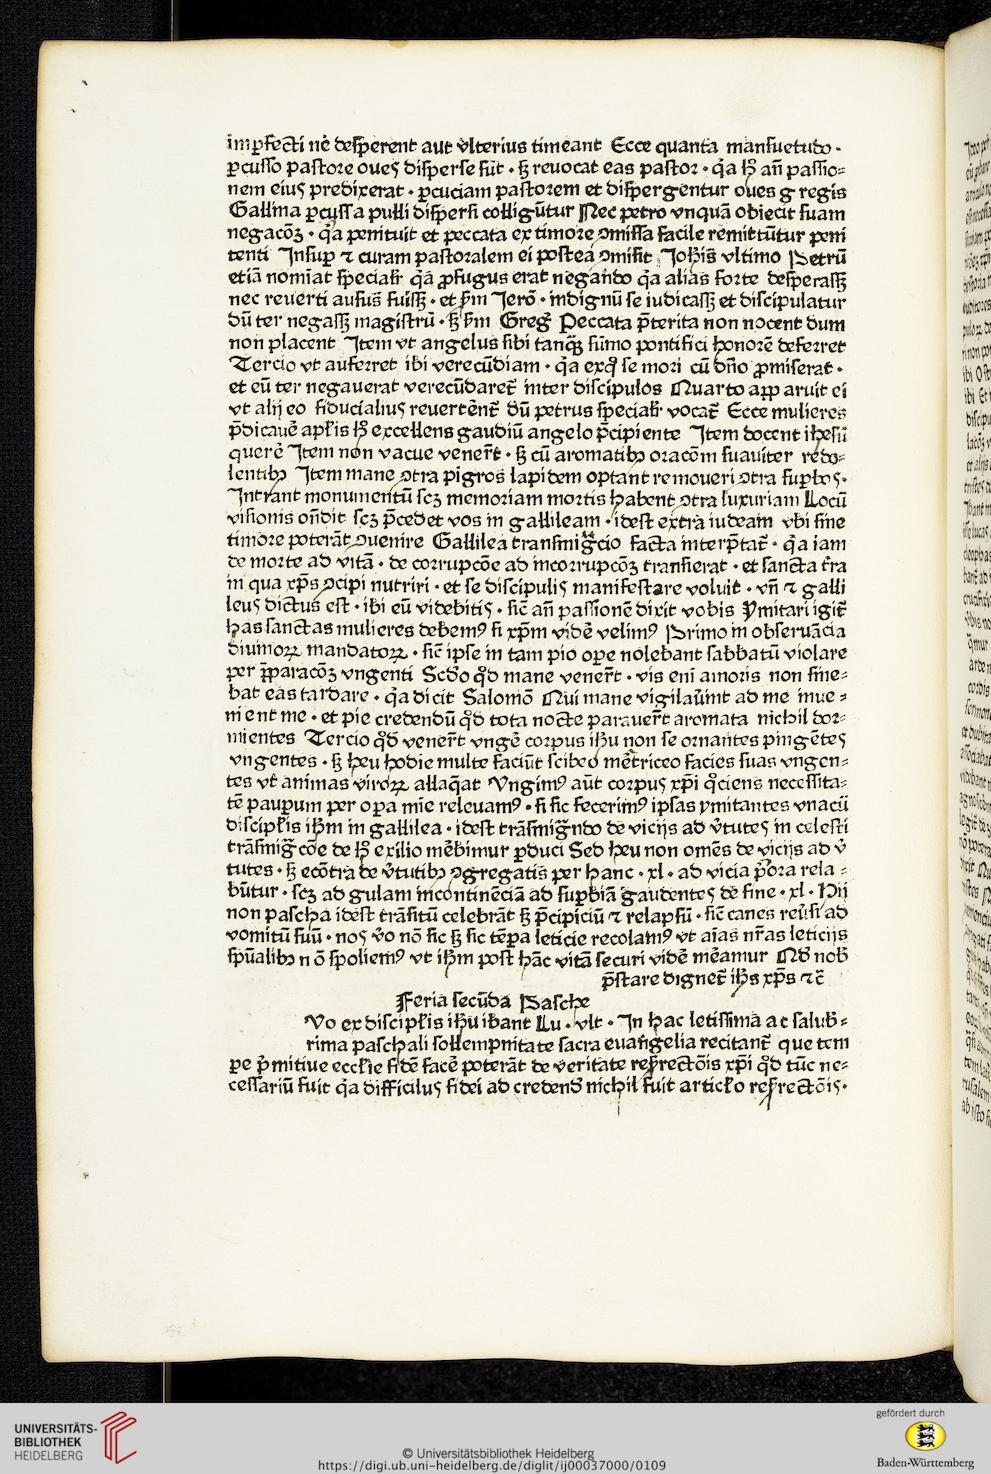 imꝑfecti nē desperent aut vlterius timeant Ecce quanta mansuetudo ·
ꝑcusso pastore oues disperse sūt · sꝫ reuocat eas pastor · q̄a hꝫ an̄ passio⸗
nem eius predixerat · ꝑcuciam pastorem et dispergentur oues gregis
Gallina ꝑcussa pulli dispersi colligūtur Nec petro vnquā obiecit suam
negacōꝫ · q̄a penituit et peccata ex timore ꝯmissa facile remittūtur peni
tenti Insuꝑ ⁊ curam pastoralem ei postea ꝯmisit Joh̄is vltimo Petrū
etiā nominat specialr̄ q̄a ꝓfugus erat negando q̄a alias forte desperassꝫ
nec reuerti ausus fuissꝫ · et s̄m Jerō · indignū se iudicassꝫ et discipulatur
dū ter negassꝫ magistrū · sꝫ s̄m Greḡ Peccata p̄terita non nocent dum
non placent Item vt angelus sibi tanqꝫ sūmo pontifici honorē deferret
Tercio vt auferret ibi verecūdiam · q̄a ex qͦ se mori cū dn̄o ꝓmiserat ·
et eū ter negauerat verecūdaret̄ inter discipulos Quarto apꝑaruit ei
vt alij eo fiducialius reuertēnt̄ dū petrus specialr̄ vocat̄ Ecce mulieres
p̄dicauē apl̄is hꝫ excellens gaudiū angelo p̄cipiente Item docent ihesū
querē Item non vacue venerr̄t · sꝫ cū aromatibꝫ oracōm suauiter redo⸗
lentibꝫ Item mane ꝯtra pigros lapidem optant remoueri ꝯtra suꝑbos ·
Intrant monumentū scꝫ memoriam mortis habent ꝯtra luxuriam Locū
visionis on̄dit scꝫ p̄cedet vos in gallileam · idest extra iudeam vbi sine
timore poterāt ꝯuenire Gallilea transmigᷓcio facta interp̄tat̄ · q̄a iam
de morte ad vitā · de corrupcōe ad incorrupcōꝫ transierat · et sancta t̄ra
in qua xp̄s ꝯcipi nutriri · et se discipulis manifestare voluit · vn̄ ⁊ galli
leus dictus est · ibi eū videbitis · sic̄ an̄ passionē dixit vobis Ymitari igit̄
has sanctas mulieres debemꝰ si xp̄m vidē velimꝰ Primo in obseruācia
diuinoꝝ mandatoꝝ · sic̄ ipse in tam pio oꝑe nolebant sabbatū violare
per p̄paracōꝫ vngenti Scd̄o qͦd mane venerr̄t · vis eni amoris non sine⸗
bat eas tardare · q̄a dicit Salomō Qui mane vigilauīnt ad me inue⸗
nient me · et pie credendū qͦd tota nocte parauerr̄t aromata nichil dor⸗
mientes Tercio qͦd venerr̄t vngē corpus ih̄u non se ornantes pingētes
vngentes · sꝫ heu hodie multe faciūt scibeo mēt̄riceo facies suas vngen⸗
tes vt̄ animas viroꝝ allaq̄at Vngimꝰ aūt corpus xp̄i qͦciens necessita⸗
tē pauꝑum per oꝑa mīe releuamꝰ · si sic fecerimꝰ ipsas ymitantes vnacū
discipl̄is ih̄m in gallilea · idest trāsmigᷓndo de vicijs ad v̄tutes in celesti
trāsmigᷓcōe de hꝫ exilio mēbimur ꝑduci Sed heu non omēs de vicijs ad v̄
tutes · sꝫ ecōtra de v̄tutibꝫ ꝯgregatis per hanc · xl · ad vicia p̄ora rela⸗
būtur · scꝫ ad gulam incontinēciā ad suꝑbiā gaudentes de fine · xl · Hij
non pascha idest trāsitū celebrāt sꝫ p̄cipiciū ⁊ relapsū · sic̄ canes reūsi ad
vomitū suū · nos v̄o nō sic sꝫ sic tēꝑa leticie recolamꝰ vt aīas nr̄as leticijs
sp̄ualibꝫ nō spoliemꝰ vt ih̄m post hāc vitā securi vidē mēamur Qd̄ nob̄
p̄stare dignet̄ ih̄s xp̄s ⁊c̄
Feria secūda Pasche
Vo ex discipl̄is ih̄u ibant Lu · vlt · In hac letissima ac salub⸗
rima paschali sollempnitate sacra euangelia recitant̄ que tem
pe p̄mitiue eccl̄ie fidē facē poterāt de veritate resr̄rectōis xp̄i qͦd tūc ne⸗
cessariū fuit q̄a difficilus fidei ad credend̄ nichil fuit articl̄o resr̄rectōis ·
UNIVERSITÄTS-
BIBLIOTHEK
HEIDELBERG
© Universitätsbibliothek Heidelberg
https://digi.ub.uni-heidelberg.de/diglit/ij00037000/0109
gefördert durch
Baden-Württemberg